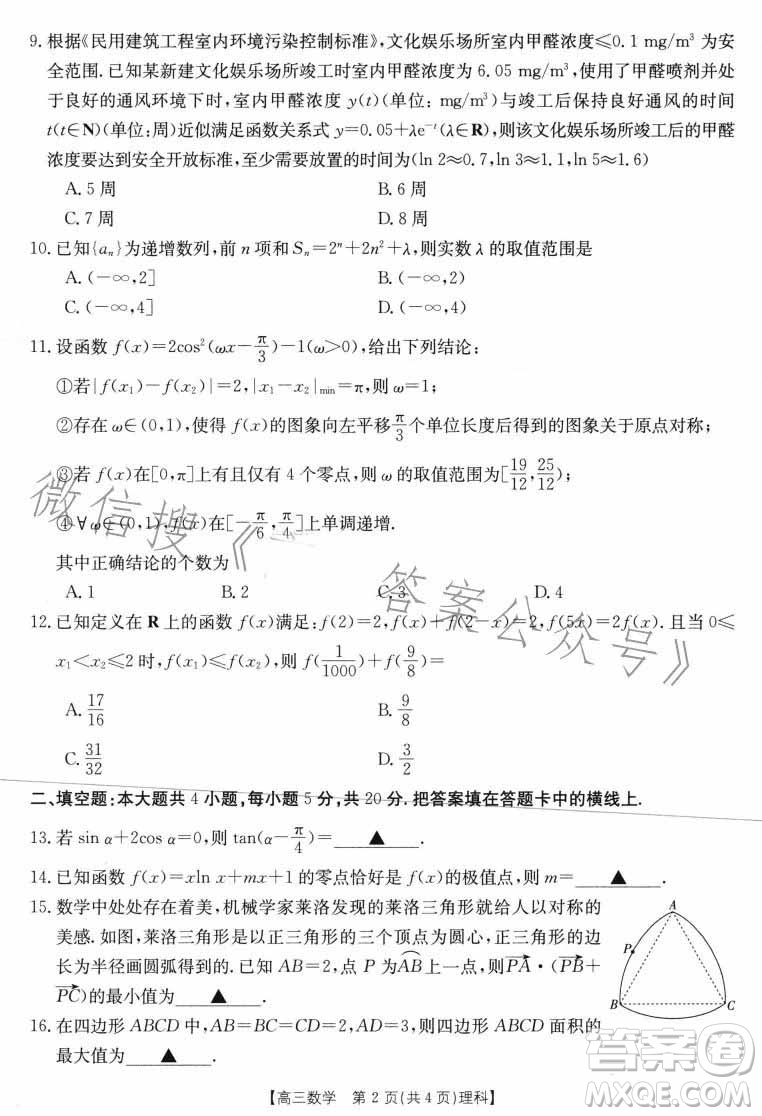 9. 根据《民用建筑工程室内环境污染控制标准》，文化娱乐场所室内甲醛浓度≤0.1 mg/m³ 为安
全范围. 已知某新建文化娱乐场所竣工时室内甲醛浓度为 6.05 mg/m³，使用了甲醛喷剂并处
于良好的通风环境下时，室内甲醛浓度 y(t)(单位：mg/m³)与竣工后保持良好通风的时间
t(t∈N)(单位：周)近似满足函数关系式 y=0.05+λe⁻ᵗ(λ∈R)，则该文化娱乐场所竣工后的甲醛
浓度要达到安全开放标准，至少需要放置的时间为(ln 2≈0.7, ln 3≈1.1, ln 5≈1.6)
A. 5 周 B. 6 周
C. 7 周 D. 8 周
10. 已知{aₙ}为递增数列，前 n 项和 Sₙ=2ⁿ+2n²+λ，则实数 λ 的取值范围是
A. (-∞,2] B. (-∞,2)
C. (-∞,4] D. (-∞,4)
11. 设函数 f(x)=2cos²(ωx-π/3)-1(ω>0)，给出下列结论：
①若|f(x₁)-f(x₂)|=2, |x₁-x₂|min=π，则 ω=1；
②存在 ω∈(0,1)，使得 f(x)的图象向左平移π/3个单位长度后得到的图象关于原点对称；
③若 f(x)在[0,π]上有且仅有 4 个零点，则 ω 的取值范围为[19/12, 25/12)；
④∀ω∈(0,1), f(x)在[-π/6, π/4]上单调递增.
其中正确结论的个数为
A. 1 B. 2 C. 3 D. 4
12. 已知定义在 R 上的函数 f(x)满足：f(2)=2, f(x)+f(2-x)=2, f(5x)=2f(x). 且当 0≤
x₁<x₂≤2 时，f(x₁)≤f(x₂)，则 f(1/1000)+f(9/8)=
A. 17/16 B. 9/8
C. 31/32 D. 3/2
二、填空题：本大题共 4 小题，每小题 5 分，共 20 分. 把答案填在答题卡中的横线上.
13. 若 sin α+2cos α=0，则 tan(α-π/4)=▲.
14. 已知函数 f(x)=xln x+mx+1 的零点恰好是 f(x)的极值点，则 m=▲.
15. 数学中处处存在着美，机械学家莱洛发现的莱洛三角形就给人以对称的
美感. 如图，莱洛三角形是以正三角形的三个顶点为圆心，正三角形的边
长为半径画圆弧得到的. 已知 AB=2，点 P 为AB上一点，则PA·(PB+
PC)的最小值为▲.
16. 在四边形 ABCD 中，AB=BC=CD=2, AD=3，则四边形 ABCD 面积的
最大值为▲.
A
P
B
C
【高三数学 第 2 页(共 4 页)理科】
微信搜《
答案公众号》
答案圈